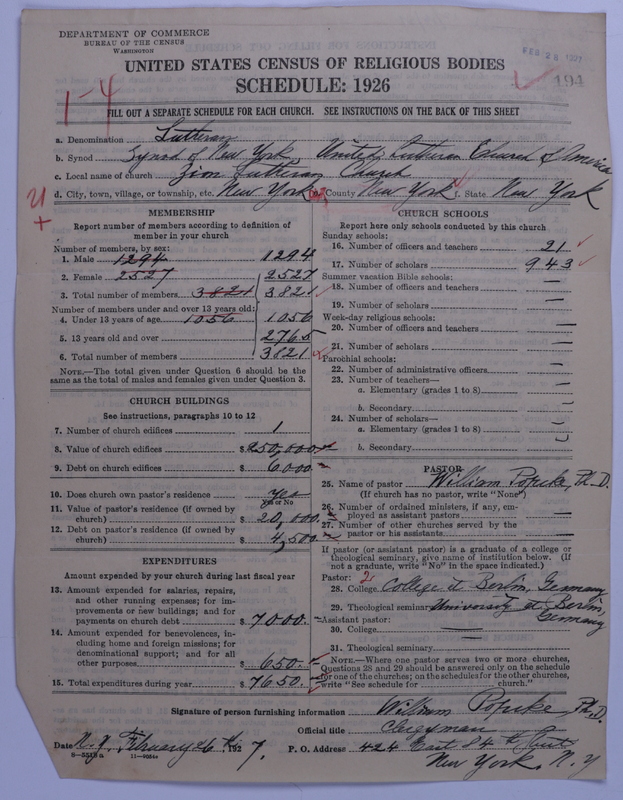 DEPARTMENT OF COMMERCE
BUREAU OF THE CENSUS
WASHINGTON
FEB 28 1927
194
UNITED STATES CENSUS OF RELIGIOUS BODIES
SCHEDULE: 1926
1-4
FILL OUT A SEPARATE SCHEDULE FOR EACH CHURCH. SEE INSTRUCTIONS ON THE BACK OF THIS SHEET
a. Denomination Lutheran
b. Synod Synod of New York United Lutheran Church of America
c. Local name of church Zion Lutheran Church
d. City, town, village, or township, etc. New York County New York f. State New York
MEMBERSHIP
Report number of members according to definition of
member in your church
Number of members, by sex:
1. Male 1294 1294
2. Female 2527 2527
3. Total number of members 3821 3821
Number of members under and over 13 years old:
4. Under 13 years of age 1056 1056
5. 13 years old and over 2765
6. Total number of members 3821
NOTE.—The total given under Question 6 should be the
same as the total of males and females given under Question 3.
CHURCH BUILDINGS
See instructions, paragraphs 10 to 12
7. Number of church edifices 1
8. Value of church edifices $250,000
9. Debt on church edifices $6000
10. Does church own pastor's residence yes
Yes or No
11. Value of pastor's residence (if owned by
church) $20,000
12. Debt on pastor's residence (if owned by
church) $4,500
EXPENDITURES
Amount expended by your church during last fiscal year
13. Amount expended for salaries, repairs,
and other running expenses; for im-
provements or new buildings; and for
payments on church debt $7000.
14. Amount expended for benevolences, in-
cluding home and foreign missions; for
denominational support; and for all
other purposes $650.
15. Total expenditures during year $7650.
CHURCH SCHOOLS
Report here only schools conducted by this church
Sunday schools:
16. Number of officers and teachers 21
17. Number of scholars 943
Summer vacation Bible schools:
18. Number of officers and teachers —
19. Number of scholars —
Week-day religious schools:
20. Number of officers and teachers —
21. Number of scholars —
Parochial schools:
22. Number of administrative officers —
23. Number of teachers—
a. Elementary (grades 1 to 8) —
b. Secondary
24. Number of scholars—
a. Elementary (grades 1 to 8)
b. Secondary
PASTOR
25. Name of pastor William Popcke, Ph.D.
(If church has no pastor, write "None")
26. Number of ordained ministers, if any, em-
ployed as assistant pastors —
27. Number of other churches served by the
pastor or his assistants —
If pastor (or assistant pastor) is a graduate of a college or
theological seminary, give name of institution below. (If
not a graduate, write "No" in the space indicated.)
Pastor: 2
28. College College at Berlin, Germany
29. Theological seminary University at Berlin,
Germany
Assistant pastor:
30. College —
31. Theological seminary
NOTE.—Where one pastor serves two or more churches,
Questions 28 and 29 should be answered only on the schedule
for one of the churches; on the schedules for the other churches,
write "See schedule for church."
Signature of person furnishing information William Popcke, Ph.D.
Official title Clergyman
Date N.Y. February 26th 1927. P. O. Address 424 East 84th Street
New York, N.Y
8—5515a 11—9664a